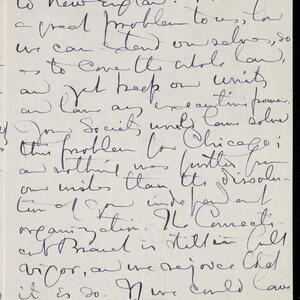 to New England. It is
a great problem to us, how
we can extend ourselves, so
as to cover the whole land,
and yet keep our units
and have any executive power.
Your Society would have solved
this problem for Chicago;
and nothing was further from
our wishes than the dissolu-
tion of your independent
organization. The Connecti-
cut Branch is still in full
vigor, and we rejoice that
it is so. If we could have